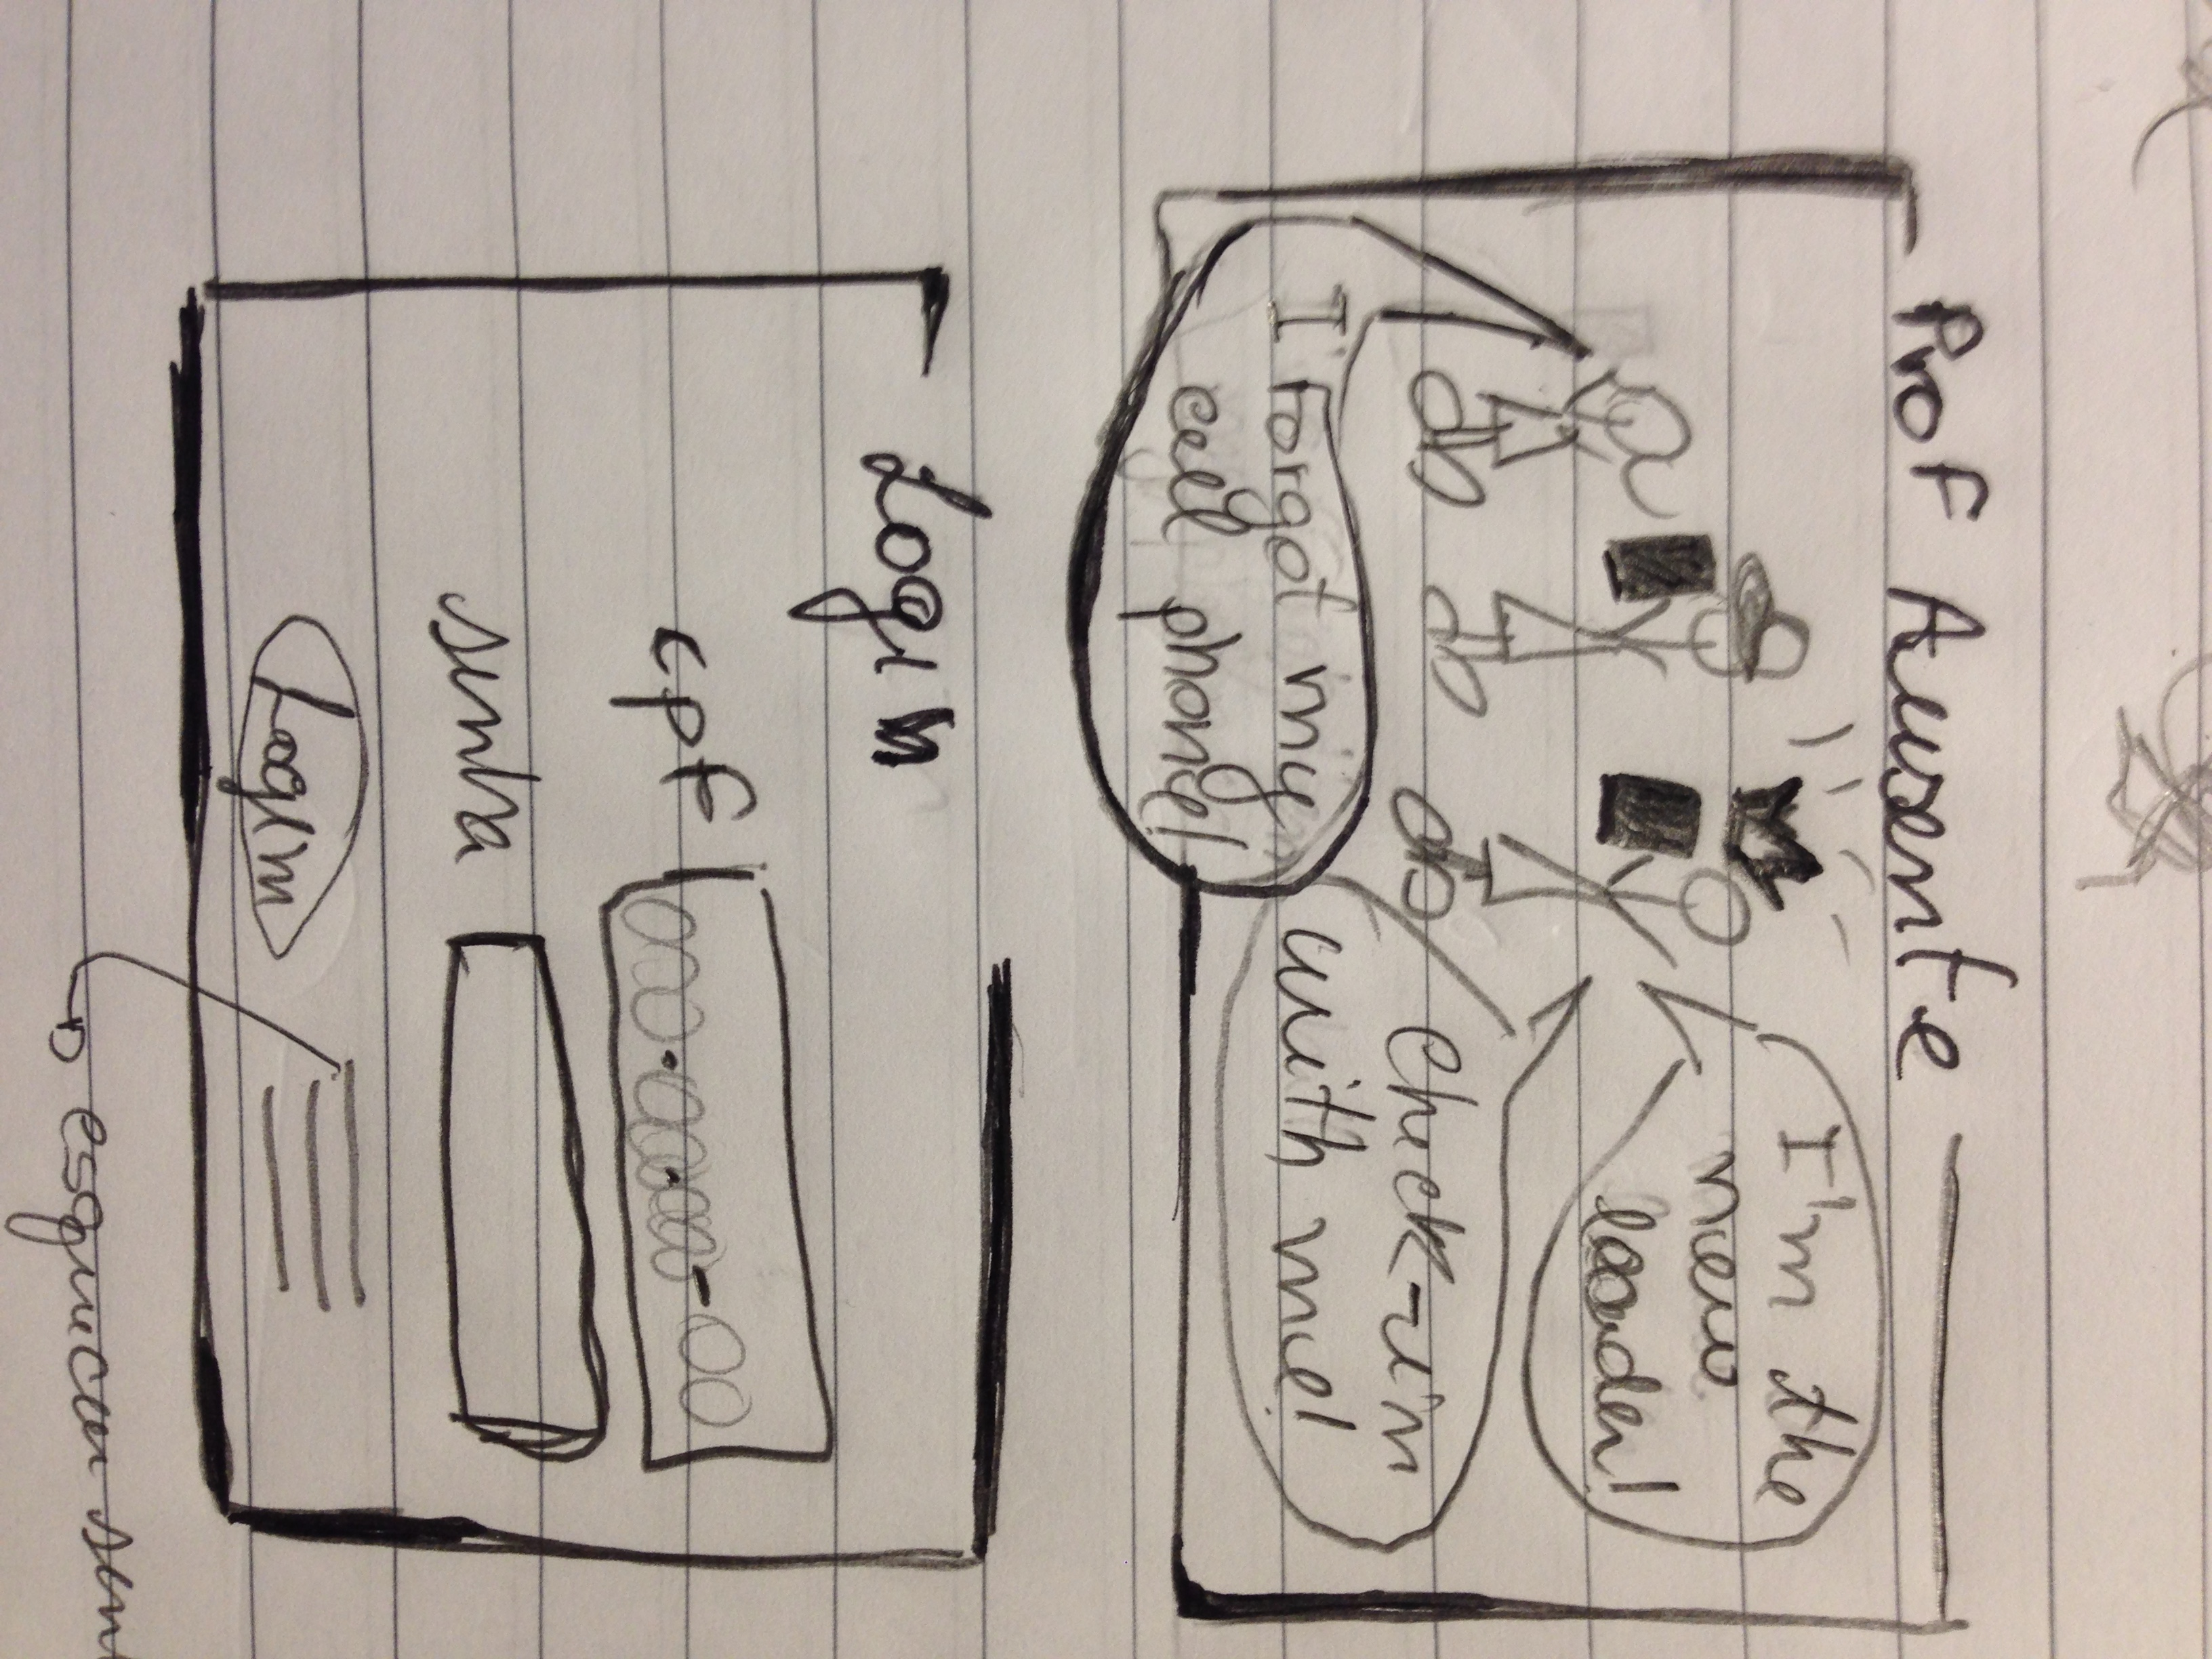 Prof Ausente
I'm the
new
leader!
Check-in
with me!
I forgot my
cell phone!
Login
cpf 000.000.000-00
senha
Login
esqueceu